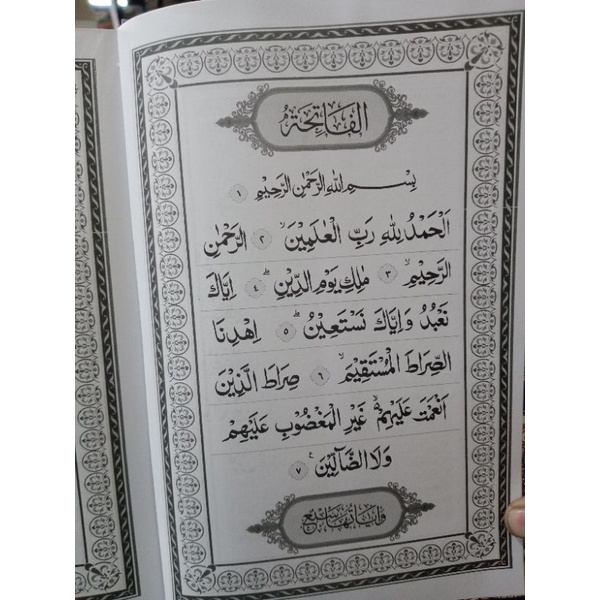 الفاتحة
بِسْمِ اللهِ الرَّحْمٰنِ الرَّحِيْمِ ١
اَلْحَمْدُ لِلّٰهِ رَبِّ الْعٰلَمِيْنَۙ ٢ الرَّحْمٰنِ
الرَّحِيْمِۙ ٣ مٰلِكِ يَوْمِ الدِّيْنِۗ ٤ اِيَّاكَ
نَعْبُدُ وَاِيَّاكَ نَسْتَعِيْنُۗ ٥ اِهْدِنَا
الصِّرَاطَ الْمُسْتَقِيْمَۙ ٦ صِرَاطَ الَّذِيْنَ
اَنْعَمْتَ عَلَيْهِمْ ەۙ غَيْرِ الْمَغْضُوْبِ عَلَيْهِمْ
وَلَا الضَّاۤلِّيْنَ ٧
وآياتها سبع